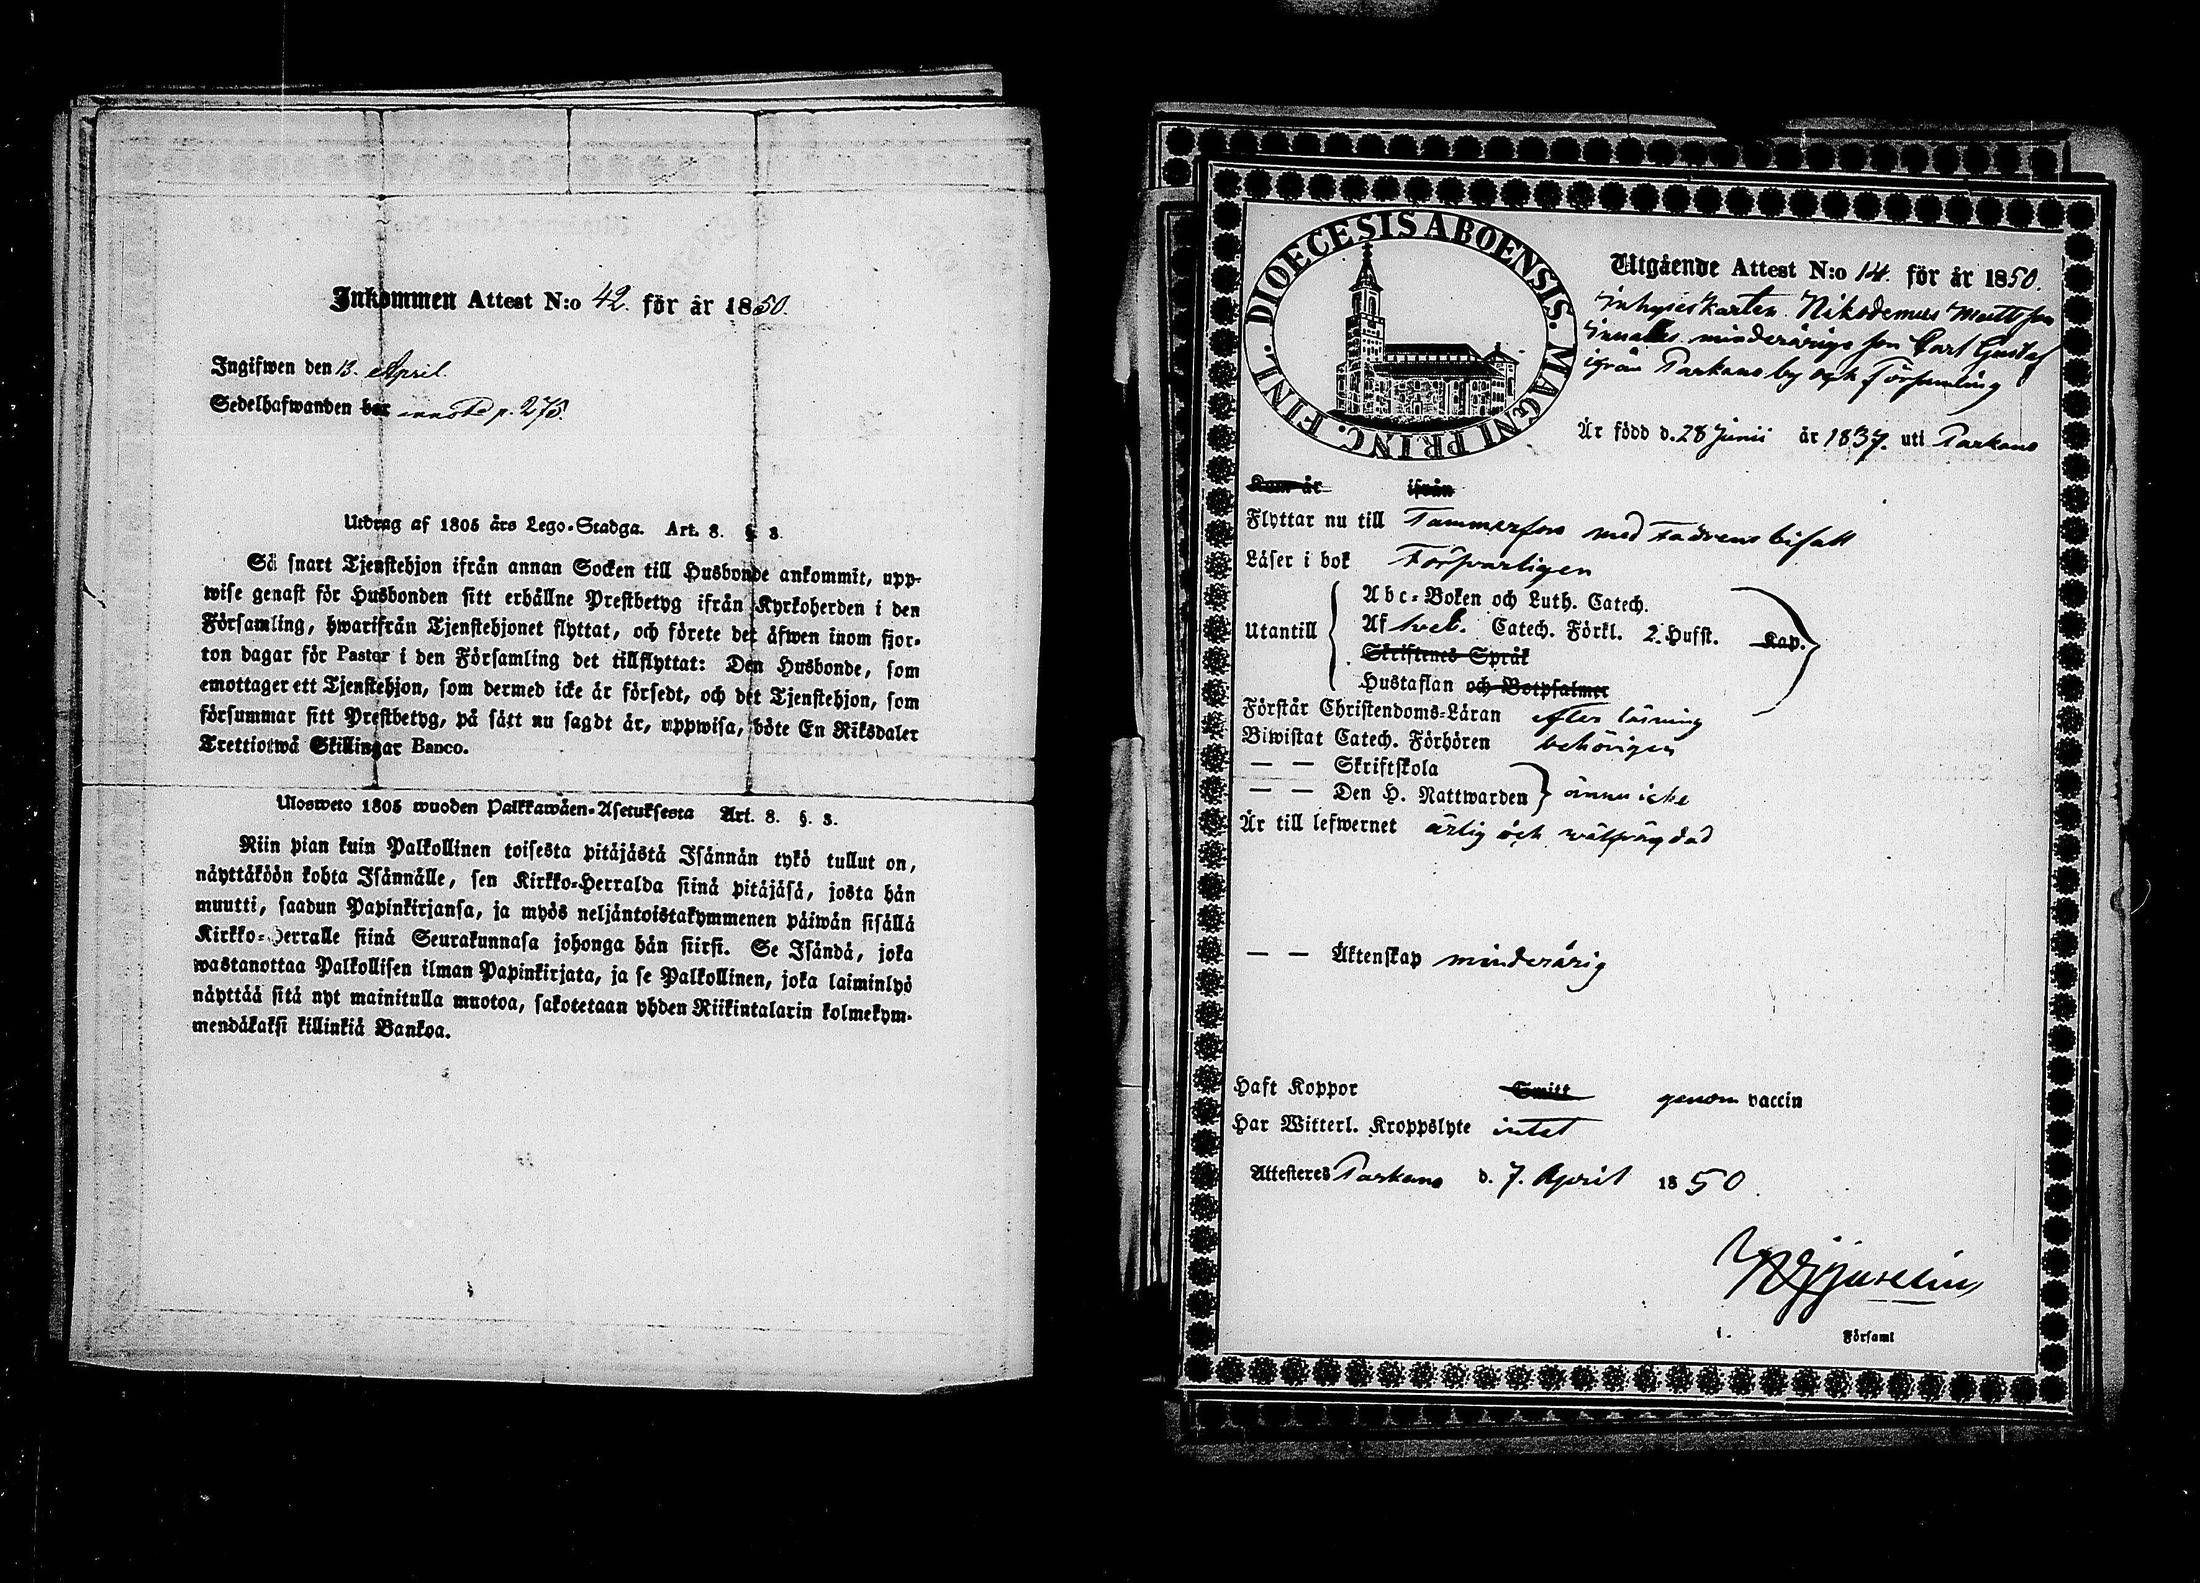 Inkommen Attest N:o 42. för år 1850.
Ingifwen den 13. April.
Sedelhafwanden har annoté p. 275.
Utdrag af 1805 års Lego-Stadga. Art. 8. §. 3.
Så snart Tjenstehjon ifrån annan Socken till Husbonde ankommit, upp-
wise genast för Husbonden sitt erhållne Prestbetyg ifrån Kyrkoherden i den
Församling, hwarifrån Tjenstehjonet flyttat, och förete det äfwen inom fjor-
ton dagar för Pastor i den Församling det tillflyttat: Den Husbonde, som
emottager ett Tjenstehjon, som dermed icke är försedt, och det Tjenstehjon, som
försummar sitt Prestbetyg, på sätt nu sagdt är, uppwisa, böte En Riksdaler
Trettiotwå Skillingar Banco.
Ulosweto 1805 wuoden Palkkawäen-Asetuksesta Art. 8. §. 3.
Niin pian kuin Palkollinen toisesta pitäjästä Isännän tykö tullut on,
näyttäköön kohta Isännälle, sen Kirkko-Herralda siinä pitäjäsä, josta hän
muutti, saadun Papinkirjansa, ja myös neljäntoistakymmenen päiwän sisällä
Kirkko-Herralle siinä Seurakunnasa johonga hän siirsi. Se Isändä, joka
wastanottaa Palkollisen ilman Papinkirjata, ja se Palkollinen, joka laiminlyö
näyttää sitä nyt mainitulla muotoa, sakotetaan yhden Riikintalarin kolmekym-
mendäkaksi killinkiä Bankoa.
DIOECESIS ABOENSIS. MAGNI PRINC. FINL.
Utgående Attest N:o 14. för år 1850.
Inhyseskarlen Nikodemus Mattsson
minderårige son Carl Gustaf
ifrån Parkano by och Församling
Är född d. 28 Junii år 1837. uti Parkano
Kom år ifrån
Flyttar nu till Tammerfors med Fadrens bifall
Läser i bok Försvarligen
Abc-Boken och Luth. Catech.
Utantill Af Catech. Förkl. 2. Hufst. Kap.
Skriftenes Språk
Hustaflan och Botpsalmer
Förstår Christendoms-Läran efter läsning
Biwistat Catech. Förhören behörigen
— — Skriftskola
— — Den H. Nattwarden ännu icke
Är till lefwernet ärlig och wälfrägdad
— — Äktenskap minderårig
Haft Koppor Smitt genom vaccin
Har Witterl. Kroppslyte intet
Attesteres Parkano d. 7. April 1850.
Församl